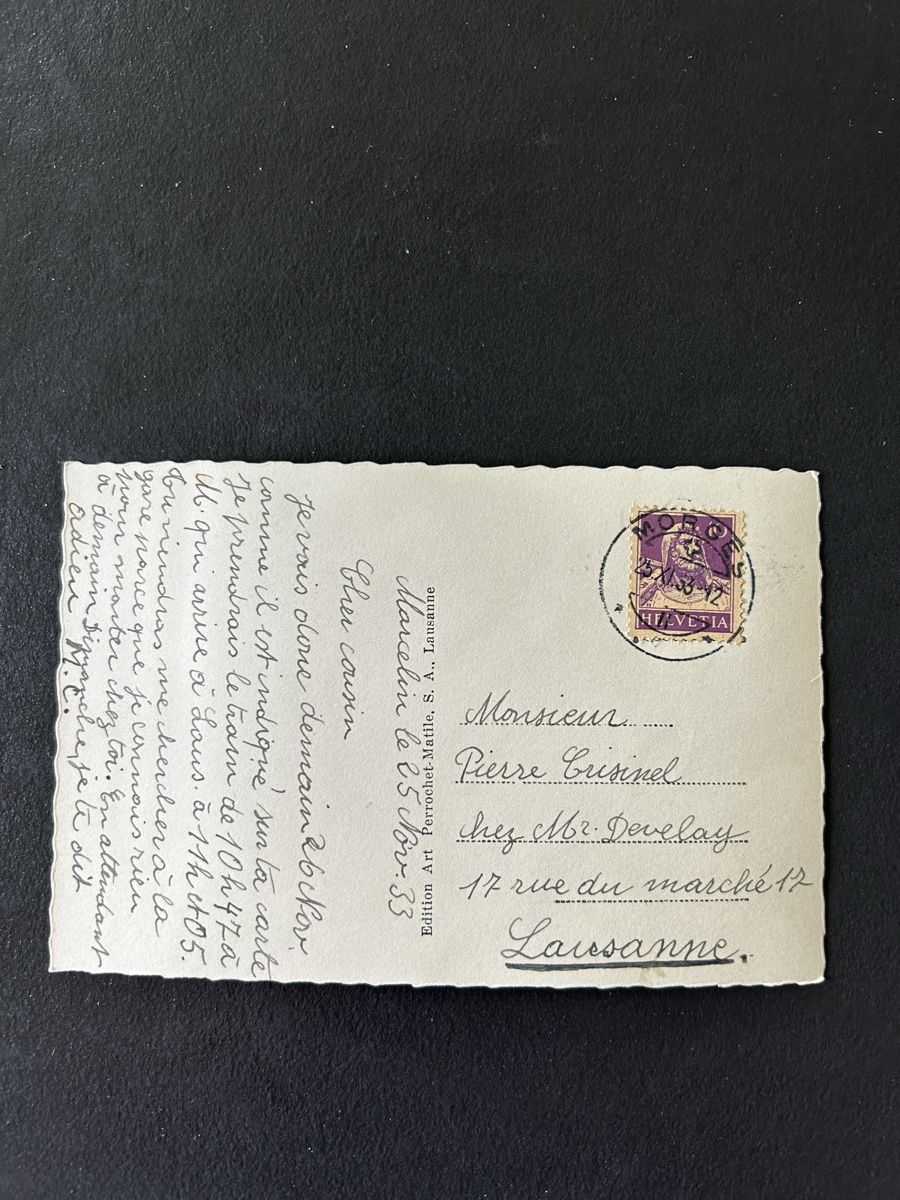 Marcelin le 25 Nov. 33
Cher cousin
Je vais donc demain 26 Nov.
comme il est indiqué sur ta carte
Je prendrais le train de 10h47 à
M. qui arrive à Laus. à 11h et 05.
Tu viendras me chercher à la
gare parce que je connais rien
pour monter chez toi. En attendant
à demain Dimanche, je te dit
adieu M.C.
Edition Art Perrochet-Matile, S. A., Lausanne
MORGES
25.XI.33-12
HELVETIA
Monsieur
Pierre Crisinel
chez Mr. Develay
17 rue du marché 17
Lausanne.